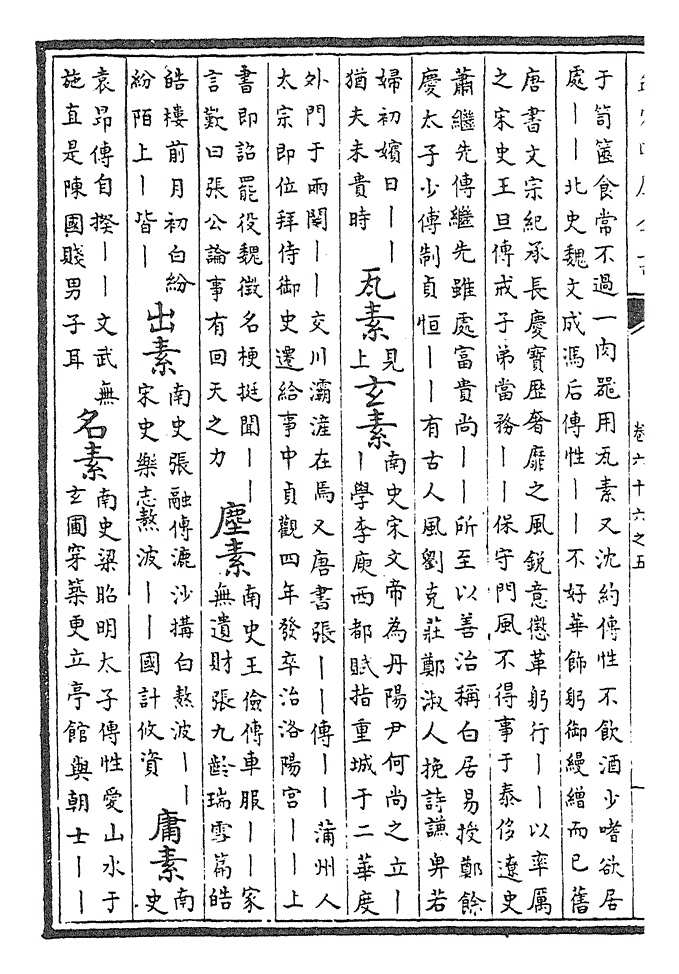 卷六十六之五
于笥篋食常不過一肉噐用瓦素又沈約傳性不飲酒少嗜欲居
處丨丨北史魏文成馮后傳性丨丨不好華飾躬御縵繒而已舊
唐書文宗紀承長慶寶歴奢靡之風鋭意懲革躬行丨丨以率厲
之宋史王旦傳戒子弟當務丨丨保守門風不得事于泰侈遼史
蕭繼先傳繼先雖處富貴尚丨丨所至以善治稱白居易授鄭餘
慶太子少傅制貞恒丨丨有古人風劉克莊鄭淑人挽詩謙卑若
婦初嬪日丨丨
猶夫未貴時
瓦素
見
上
玄素
南史宋文帝為丹陽尹何尚之立丨
丨學李庾西都賦指重城于二華度
外門于兩闕丨丨交川灞滻在焉又唐書張丨丨傳丨丨蒲州人
太宗即位拜侍御史遷給事中貞觀四年發卒治洛陽宫丨丨上
書即詔罷役魏徵名梗挺聞丨丨
言歎曰張公論事有回天之力
塵素
南史王儉傳車服丨丨家
無遺財張九齡瑞雪篇皓
皓樓前月初白紛
紛陌上丨皆丨
出素
南史張融傳漉沙搆白熬波丨丨
宋史樂志熬波丨丨國計攸資
庸素
南
史
袁昂傳自揆丨丨文武無
施直是陳國賤男子耳
名素
南史梁昭明太子傳性愛山水于
玄圃穿築更立亭館與朝士丨丨